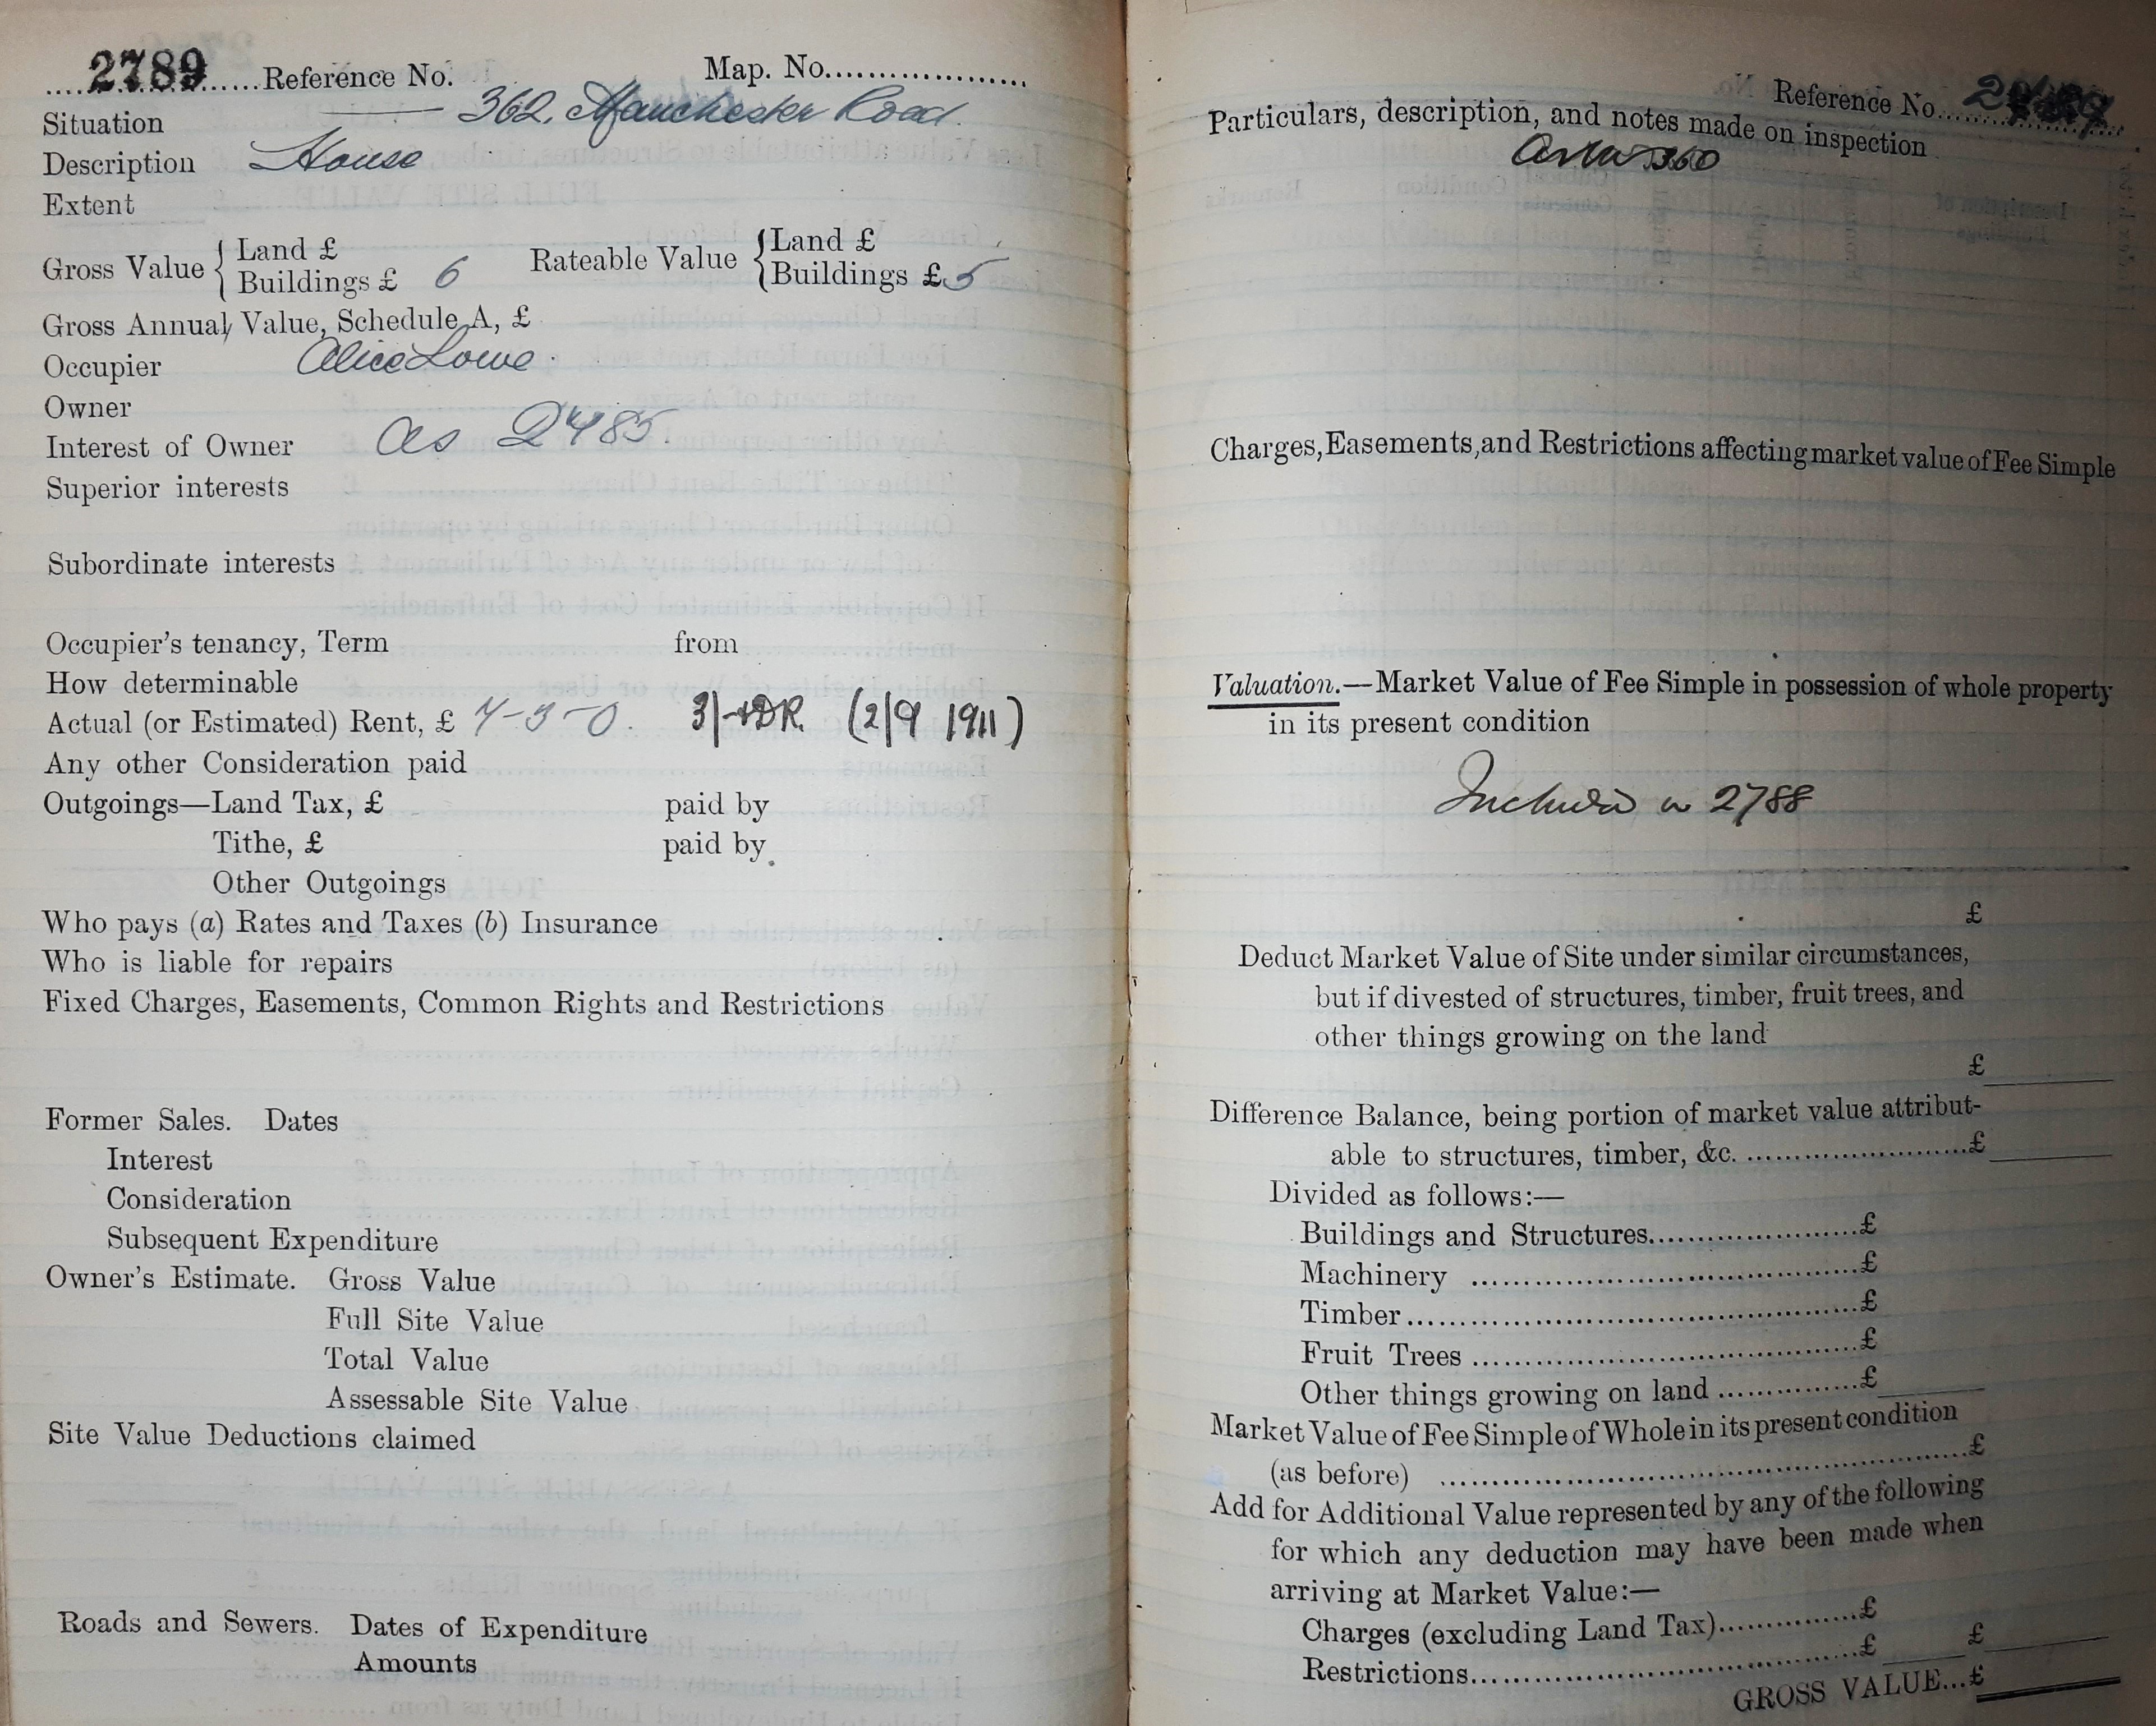 2789 Reference No. Map. No.
Situation 362, Manchester Road.
Description House
Extent
Gross Value { Land £ Rateable Value { Land £
Buildings £ 6 Buildings £ 5
Gross Annual Value, Schedule A, £
Occupier Alice Lowe.
Owner
Interest of Owner as 2785.
Superior interests
Subordinate interests
Occupier's tenancy, Term from
How determinable
Actual (or Estimated) Rent, £ 7-3-0. 3/- (2/9 1911)
Any other Consideration paid
Outgoings—Land Tax, £ paid by
Tithe, £ paid by
Other Outgoings
Who pays (a) Rates and Taxes (b) Insurance
Who is liable for repairs
Fixed Charges, Easements, Common Rights and Restrictions
Former Sales. Dates
Interest
Consideration
Subsequent Expenditure
Owner's Estimate. Gross Value
Full Site Value
Total Value
Assessable Site Value
Site Value Deductions claimed
Roads and Sewers. Dates of Expenditure
Amounts
Reference No. 2789
Particulars, description, and notes made on inspection
360
Charges, Easements, and Restrictions affecting market value of Fee Simple
Valuation.—Market Value of Fee Simple in possession of whole property
in its present condition
Included in 2788
£
Deduct Market Value of Site under similar circumstances,
but if divested of structures, timber, fruit trees, and
other things growing on the land
£
Difference Balance, being portion of market value attribut-
able to structures, timber, &c. £
Divided as follows:—
Buildings and Structures £
Machinery £
Timber £
Fruit Trees £
Other things growing on land £
Market Value of Fee Simple of Whole in its present condition
(as before) £
Add for Additional Value represented by any of the following
for which any deduction may have been made when
arriving at Market Value:—
Charges (excluding Land Tax) £
Restrictions £ £
GROSS VALUE...£